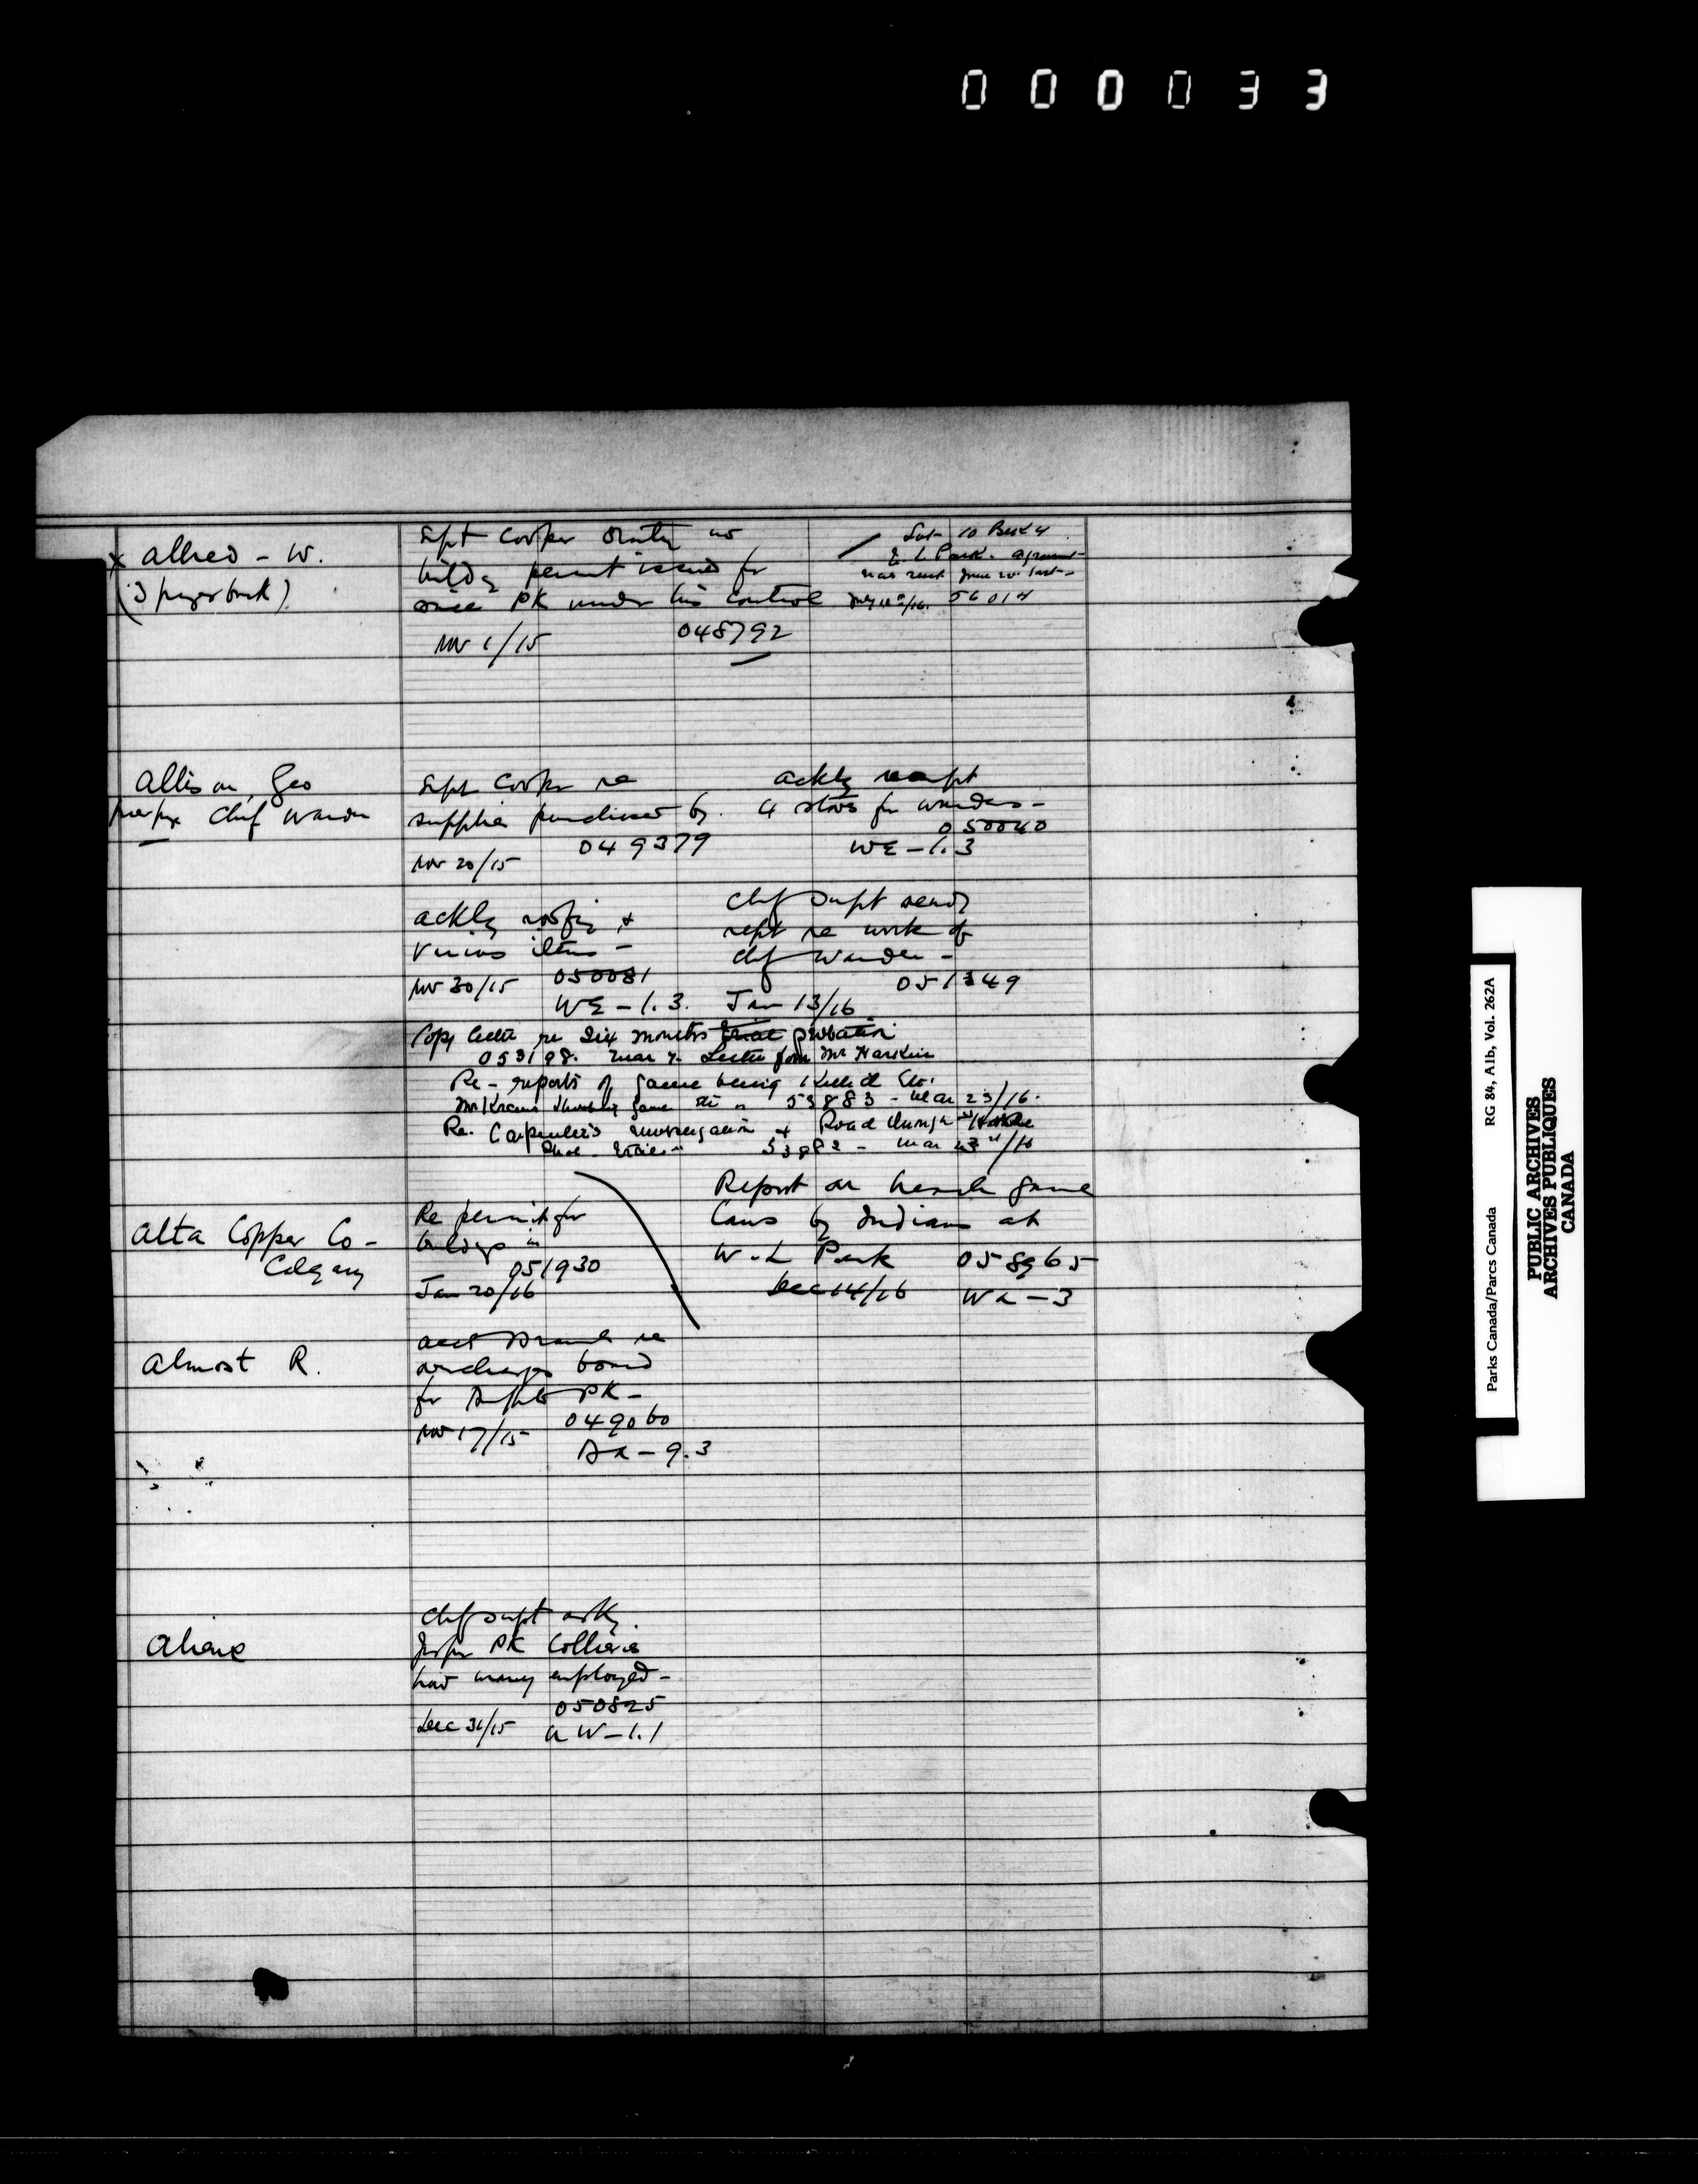 000033
x Allred - W.
(3 pages back)
Supt Cooper no
buildg permit issued for
since PK under his control
Nov 1/15 048792
Lot 10 Block 4
E. L. Park. agreement
was sent June 20 last
56014
Allison, Geo
Chf Warden
Supt Cooper re
supplies purchased by
Nov 20/15 049379
ackg receipt
4 stoves for wardens -
050040
WE - 1.3
ackg roofing &
various items -
Nov 30/15 050081
WE - 1.3.
Chf Supt sends
rept re work of
chf Warden -
051349
Jan 13/16
Copy letter re Six months trial probation
053198. Mar 7. Letter from Mr Harkin
Re - reports of game being killed etc.
53883 - Mar 23/16.
Re. Carpenter's investigation & Road through
53882 - Mar 23rd/16
Report on breach game
laws by Indians at
W-L Park 058965
Dec 14/16 WL - 3
Alta Copper Co -
Calgary
Re permit for
buildgs in
051930
Jan 20/16
Almost R.
Acct Branch re
overcharges board
for PK -
Nov 17/15 049060
- 9.3
Chf Supt askg
Jasper PK Collieries
how many employed -
050825
Dec 31/15 W - 1.1
Parks Canada/Parcs Canada RG 84, A1b, Vol. 262A
PUBLIC ARCHIVES
ARCHIVES PUBLIQUES
CANADA